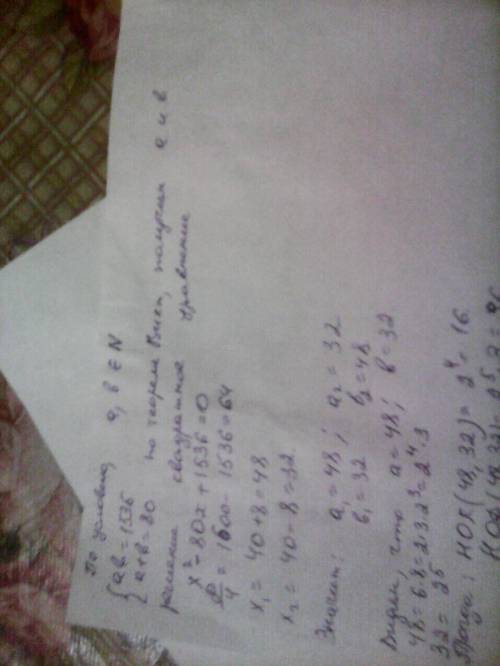 По условию, a, b ∈ N
{ ab = 1536
{ a+b = 80 по теореме Виета, получим a и b
решение квадратное уравнение
x² - 80x + 1536 = 0
D/4 = 1600 - 1536 = 64
x₁ = 40+8 = 48
x₂ = 40 - 8 = 32.
Значит: a₁ = 48; a₂ = 32
b₁ = 32 b₂ = 48
Видим, что a = 48; b = 32
48 = 6·8 = 2·3·2³ = 2⁴·3
32 = 2⁵
НОД (48, 32) = 2⁴ = 16.
(48, 32) = 2⁵·3 = 96